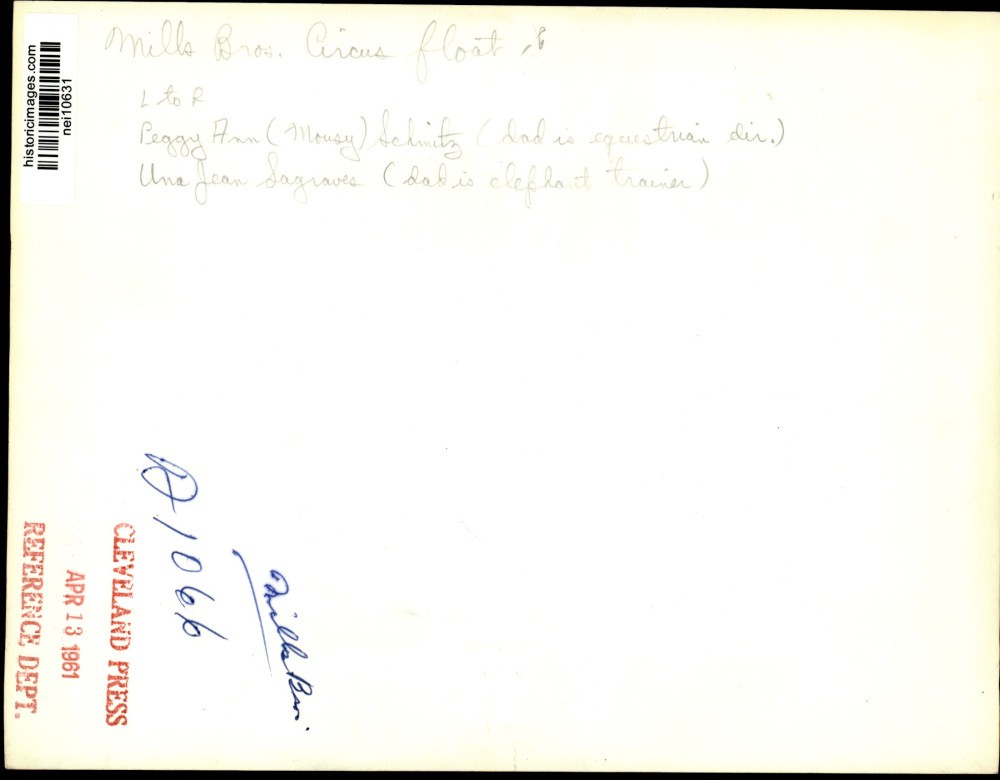 Mills Bros. Circus float
L to R
Peggy Ann (Mousy) Schmitz (dad is equestrian dir.)
Una Jean Sagraves (dad is elephant trainer)
historicimages.com
nei10631
1066
Mills Bros.
CLEVELAND PRESS
APR 13 1961
REFERENCE DEPT.